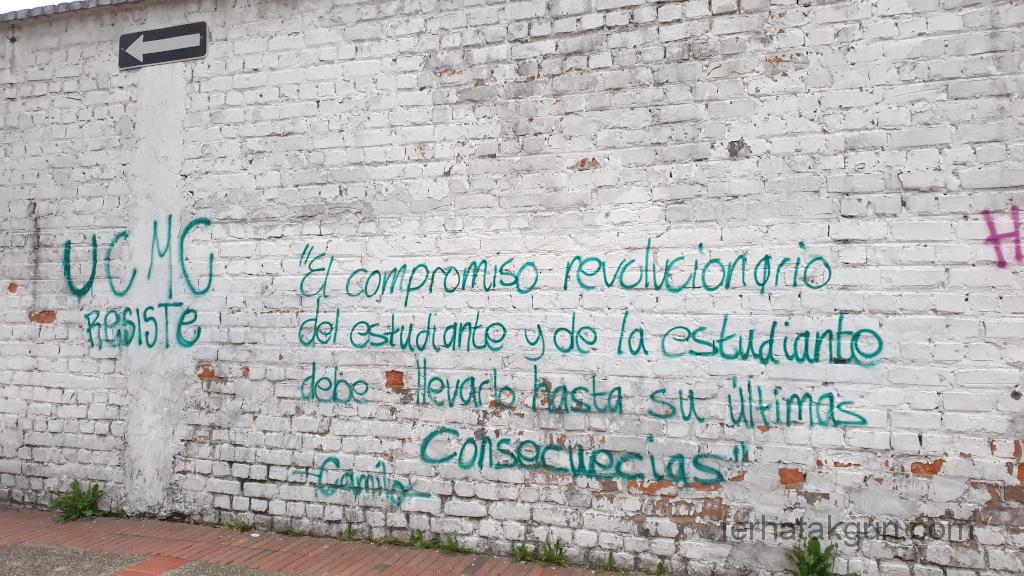 UCMC
RESISTE
"El compromiso revolucionario
del estudiante y de la estudiante
debe llevarlo hasta su últimas
Consecuecias"
-Camilo
H
ferhatakgun.com